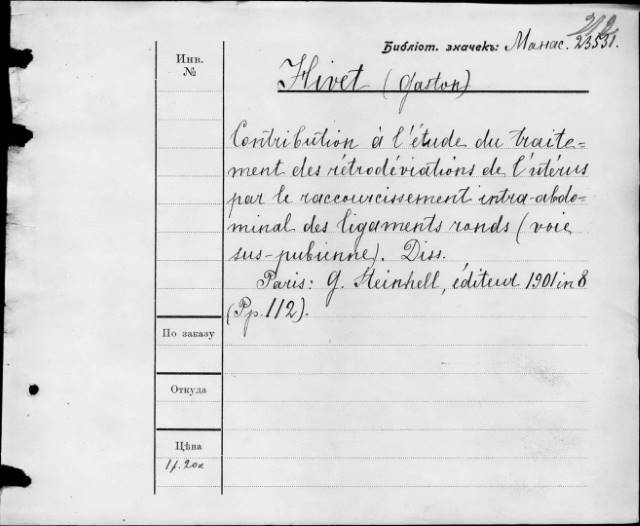 Библіот. значекъ: Манас. 23531.
Инв.
№
Hivet (Gaston)
Contribution à l'étude du traite-
ment des rétrodéviations de l'utérus
par le raccourcissement intra-abdo-
minal des ligaments ronds (voie
sus-pubienne). Diss.
Paris: G. Steinheil, éditeur 1901 in 8
(Pp. 112).
По заказу
Откуда
Цѣна